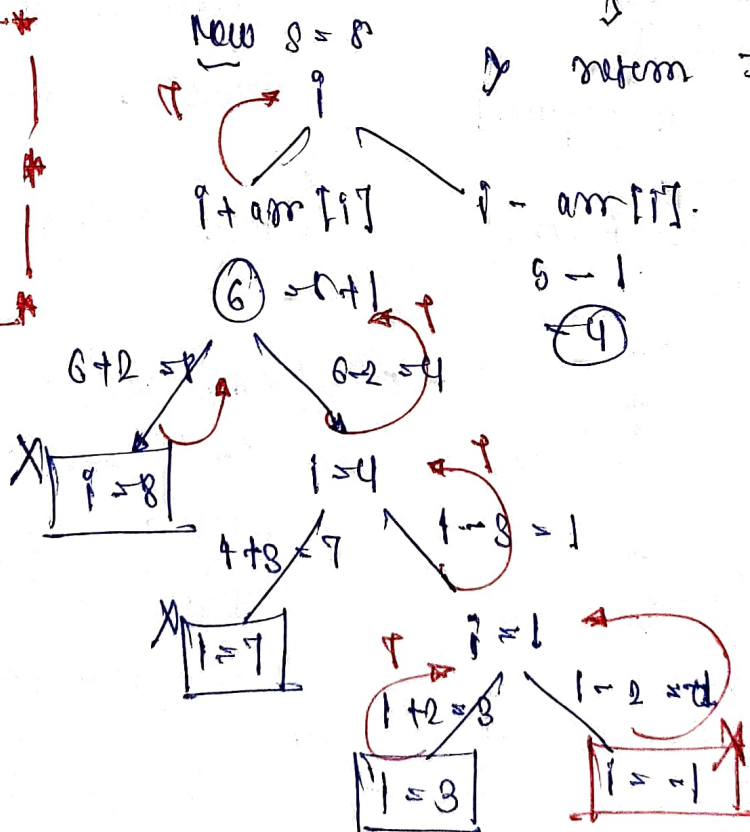 Now s = 8
return
T
i
i + arr[i]
i - arr[i].
6 = 5+1
5 - 1
= 4
T
6+2 = 8
6-2 = 4
X
i = 8
i = 4
T
4+3 = 7
4 - 3 = 1
X
i = 7
i = 1
T
1+2 = 3
1 - 2 = -1
X
i = 3
i = -1